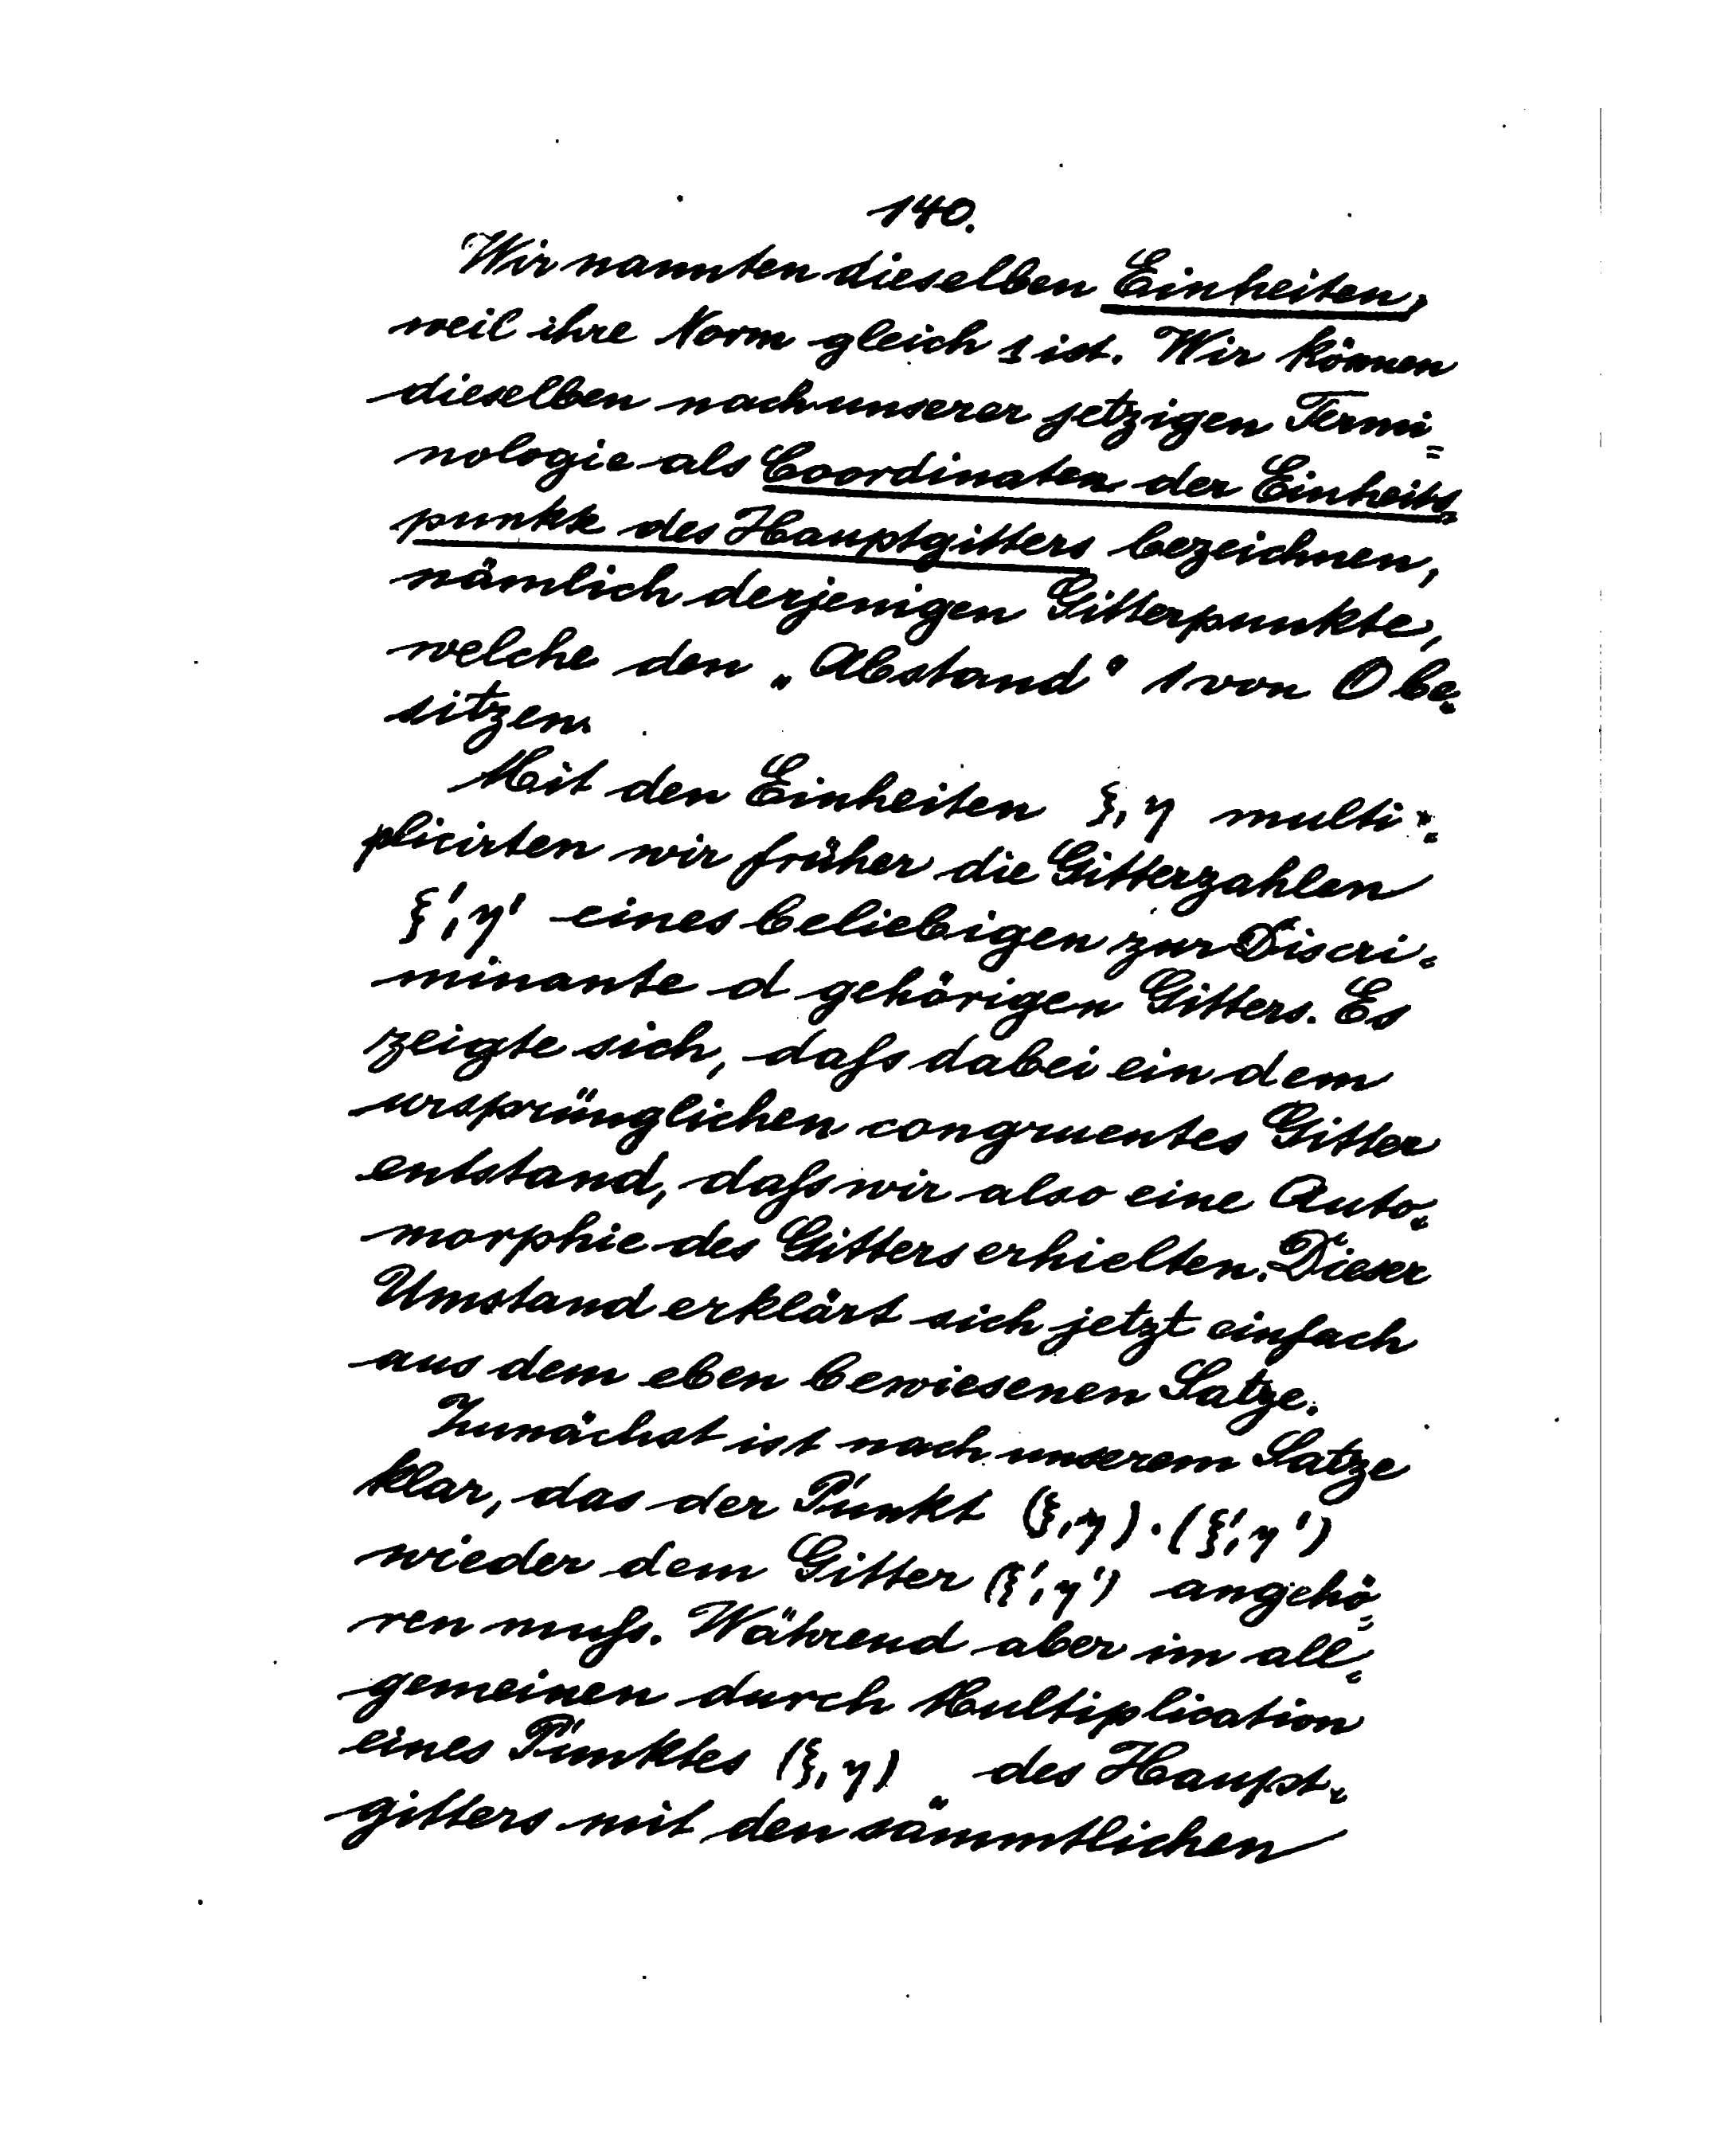 140.
Wir nannten dieselben Einheiten,
weil ihre Norm gleich 1 ist. Wir können
dieselben nach unserer jetzigen Termi=
nologie als Coordinaten der Einheits
punkte des Hauptgitters bezeichnen,
nämlich derjenigen Gitterpunkte,
welche den „Abstand“ 1 von O be=
sitzen.
Mit den Einheiten ξ, η multi=
plicirten wir früher die Gitterzahlen
ξ', η' eines beliebigen zur Discri=
minante d gehörigen Gitters. Es
zeigte sich, daſs dabei ein dem
ursprünglichen congruentes Gitter
entstand, daſs wir also eine Auto=
morphie des Gitters erhielten. Dieser
Umstand erklärt sich jetzt einfach
aus dem eben bewiesenen Satze.
Zunächst ist nach unserem Satze
klar, das der Punkt (ξ, η) · (ξ', η')
wieder dem Gitter (ξ', η') angehö=
ren muſs. Während aber im all=
gemeinen durch Multiplication
eines Punktes (ξ, η) des Haupt=
gitters mit den sämmtlichen